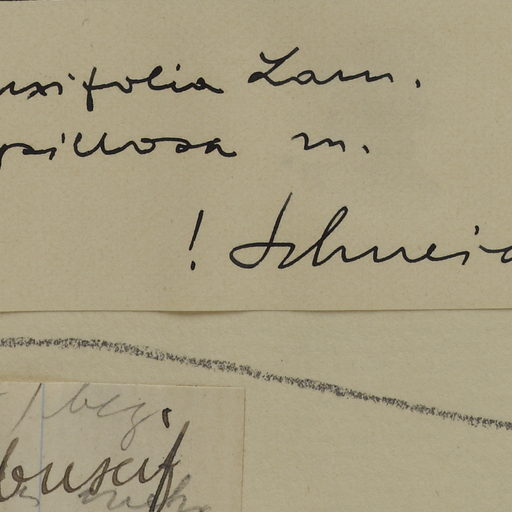 uxifolia Lam.
psillosa m.
! Schneid
buxif